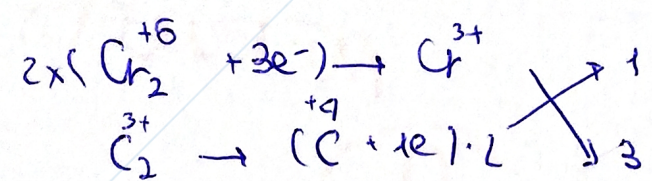 2x(Cr₂⁺⁶ +3e⁻) → Cr³⁺ 1
C₂³⁺ → (C⁺⁴ + 1e)·2 3